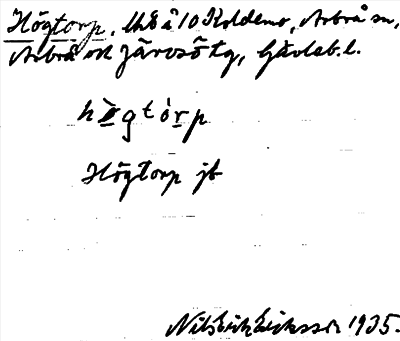 Högtorp, lht å 10 Koldemo, Arbrå sn,
Arbrå och Järvsö tg, Gävleb. l.
hö̀gtórp
Högtorp jb
Nils Erik Eriksson 1935.